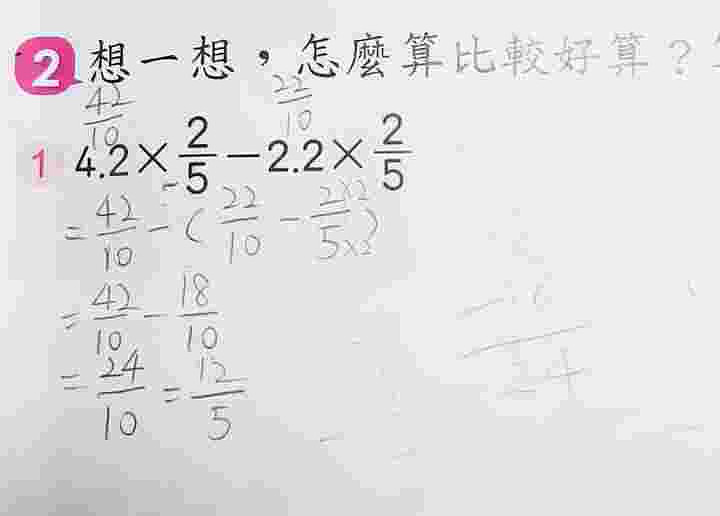 2 想一想，怎麼算比較好算？
42/10 22/10
1 4.2×2/5－2.2×2/5
=42/10-(22/10-2×2/5×2)
=42/10-18/10
=24/10=12/5